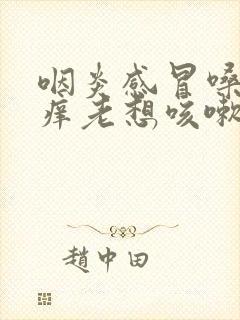 咽炎感冒嗓
痒老想咳嗽
趙中田